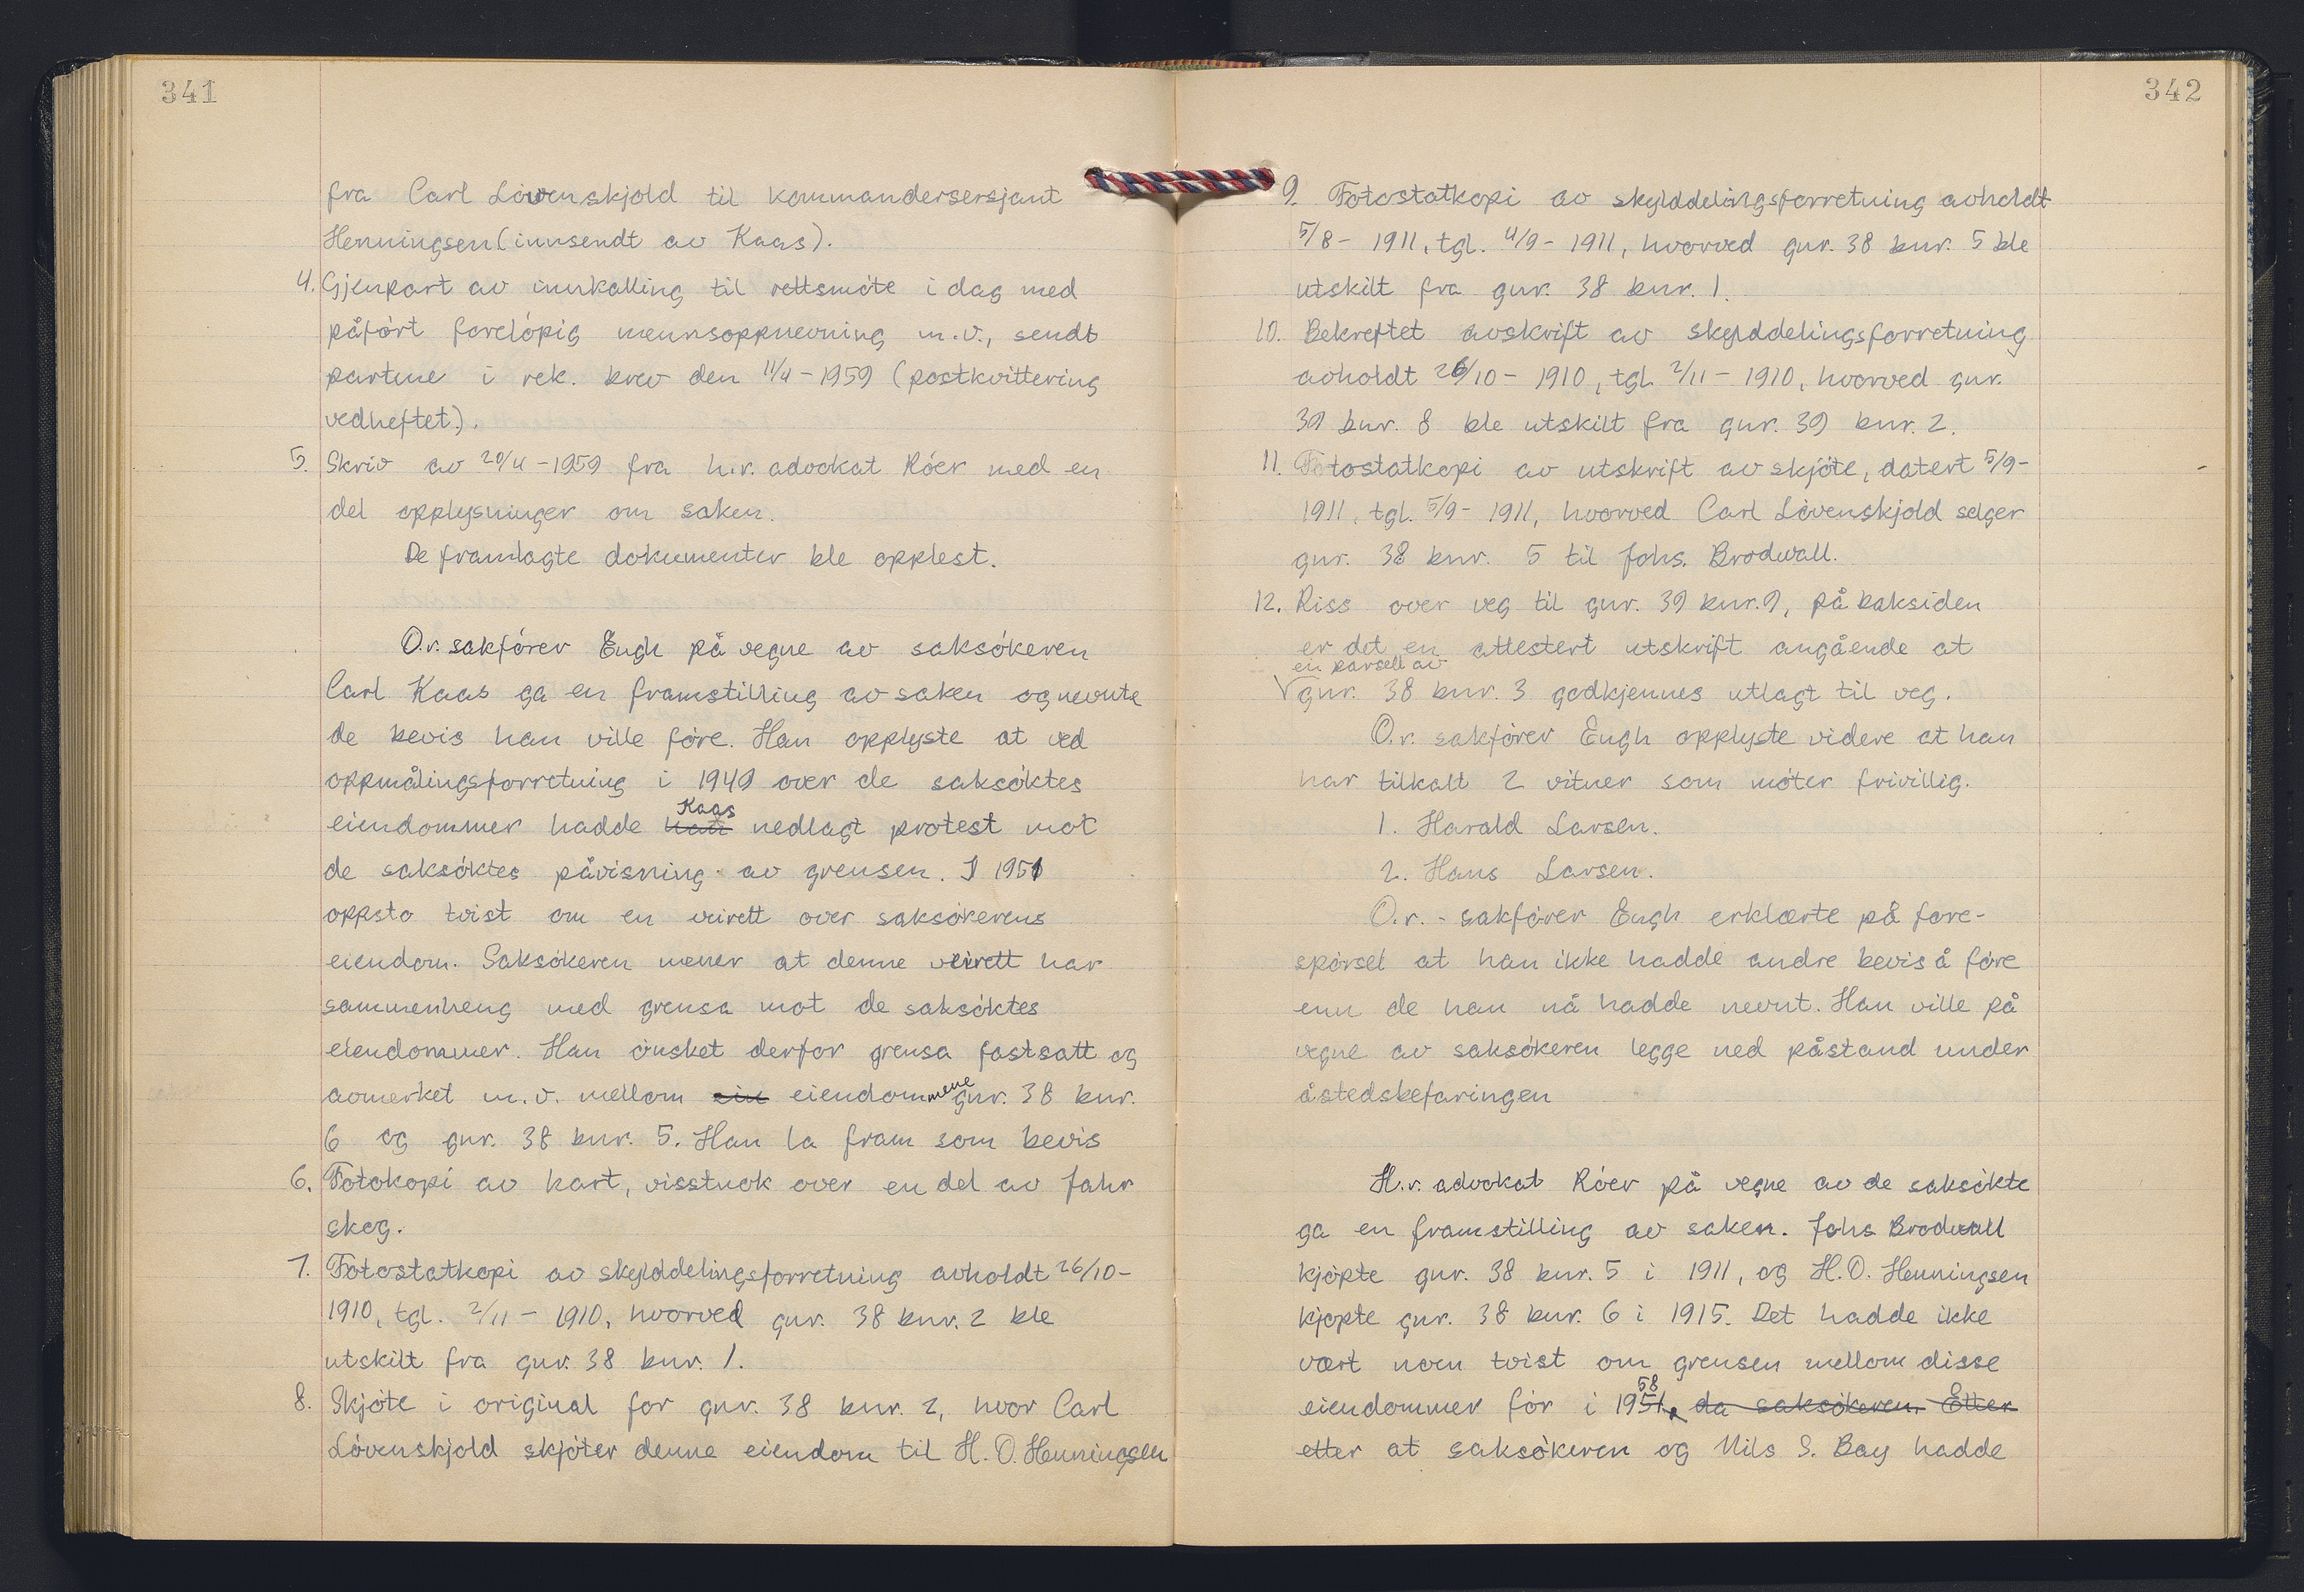 341
fra Carl Lövenskjold til kommandersersjant
Henningsen (innsendt av Kaas).
4. Gjenpart av innkalling til rettsmöte i dag med
påfört forelöpig mennsoppnevning m.v., sendt
partene i rek. brev den 11/4 - 1959 (postkvittering
vedheftet).
5. Skriv av 20/4 - 1959 fra h.r. advokat Röer med en
del opplysninger om saken.
De framlagte dokumenter ble opplest.
O.r. sakförer Engh på vegne av saksökeren
Carl Kaas ga en framstilling av saken og nevnte
de bevis han ville före. Han opplyste at ved
oppmålingsforretning i 1949 over de saksöktes
eiendommer hadde han Kaas nedlagt protest mot
de saksöktes påvisning av grensen. I 1951
oppsto tvist om en veirett over saksökerens
eiendom. Saksökeren mener at denne veirett har
sammenheng med grensa mot de saksöktes
eiendommer. Han önsket derfor grensa fastsatt og
avmerket m.v. mellom sin eiendommene gnr. 38 bnr.
6 og gnr. 38 bnr. 5. Han la fram som bevis
6. Fotokopi av kart, visstnok over en del av Fahr
skog.
7. Fotostatkopi av skylddelingsforretning avholdt 26/10 -
1910, tgl. 2/11 - 1910, hvorved gnr. 38 bnr. 2 ble
utskilt fra gnr. 38 bnr. 1.
8. Skjöte i original for gnr. 38 bnr. 2, hvor Carl
Lövenskjold skjöter denne eiendom til H. O. Henningsen
342
9. Fotostatkopi av skylddelingsforretning avholdt
5/8 - 1911, tgl. 4/9 - 1911, hvorved gnr. 38 bnr. 5 ble
utskilt fra gnr. 38 bnr. 1.
10. Bekreftet avskrift av skylddelingsforretning
avholdt 26/10 - 1910, tgl. 2/11 - 1910, hvorved gnr.
39 bnr. 8 ble utskilt fra gnr. 39 bnr. 2.
11. Fotostatkopi av utskrift av skjöte, datert 5/9 -
1911, tgl. 5/9 - 1911, hvorved Carl Lövenskjold selger
gnr. 38 bnr. 5 til Johs. Brodwall.
12. Riss over veg til gnr. 39 bnr. 9, på baksiden
er det en attestert utskrift angående at
en parsell av
√ gnr. 38 bnr. 3 godkjennes utlagt til veg.
O.r. sakförer Engh opplyste videre at han
har tilkalt 2 vitner som möter frivillig.
1. Harald Larsen.
2. Hans Larsen.
O.r. - sakförer Engh erklærte på fore-
spörsel at han ikke hadde andre bevis å före
enn de han nå hadde nevnt. Han ville på
vegne av saksökeren legge ned påstand under
åstedsbefaringen
H.r. advokat Röer på vegne av de saksökte
ga en framstilling av saken. Johs Brodwall
kjöpte gnr. 38 bnr. 5 i 1911, og H. O. Henningsen
kjöpte gnr. 38 bnr. 6 i 1915. Det hadde ikke
vært noen tvist om grensen mellom disse
eiendommer för i 1951 58, da saksökeren. Etter
etter at saksökeren og Nils S. Bay hadde